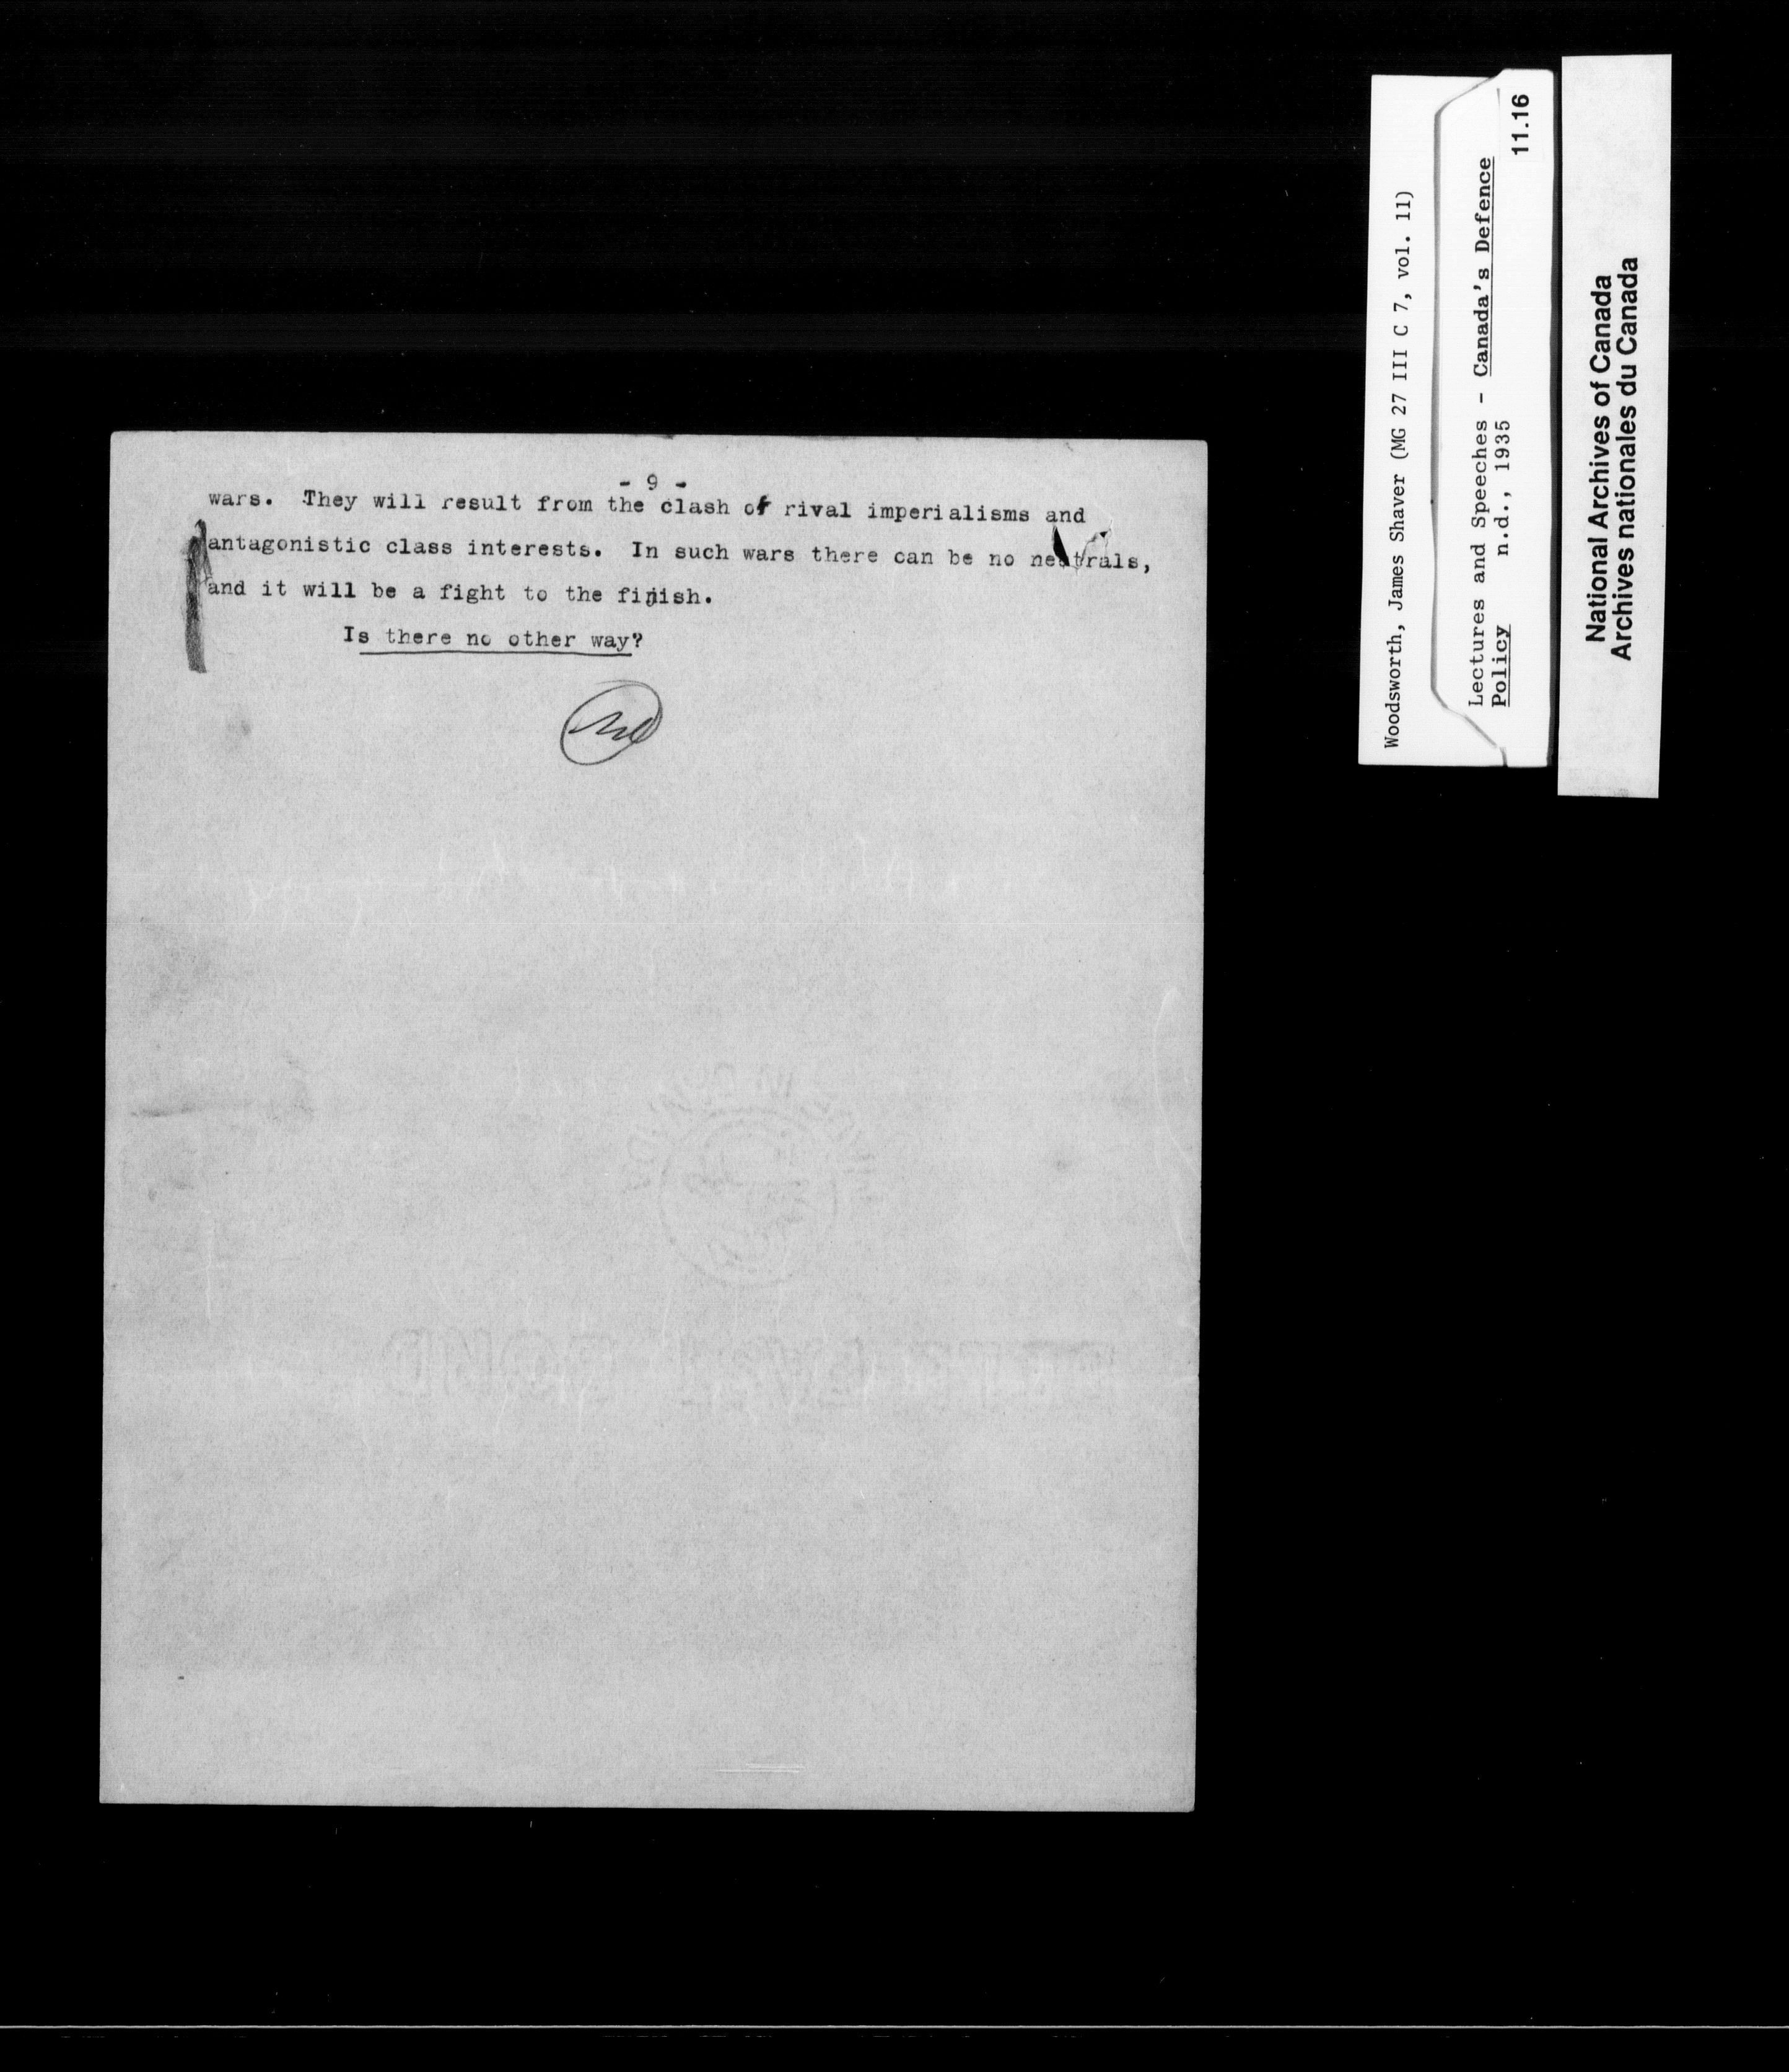 - 9 -
wars. They will result from the clash of rival imperialisms and
antagonistic class interests. In such wars there can be no neutrals,
and it will be a fight to the finish.
Is there no other way?
Woodsworth, James Shaver (MG 27 III C 7, vol. 11)
Lectures and Speeches - Canada's Defence
Policy n.d., 1935
11.16
National Archives of Canada
Archives nationales du Canada